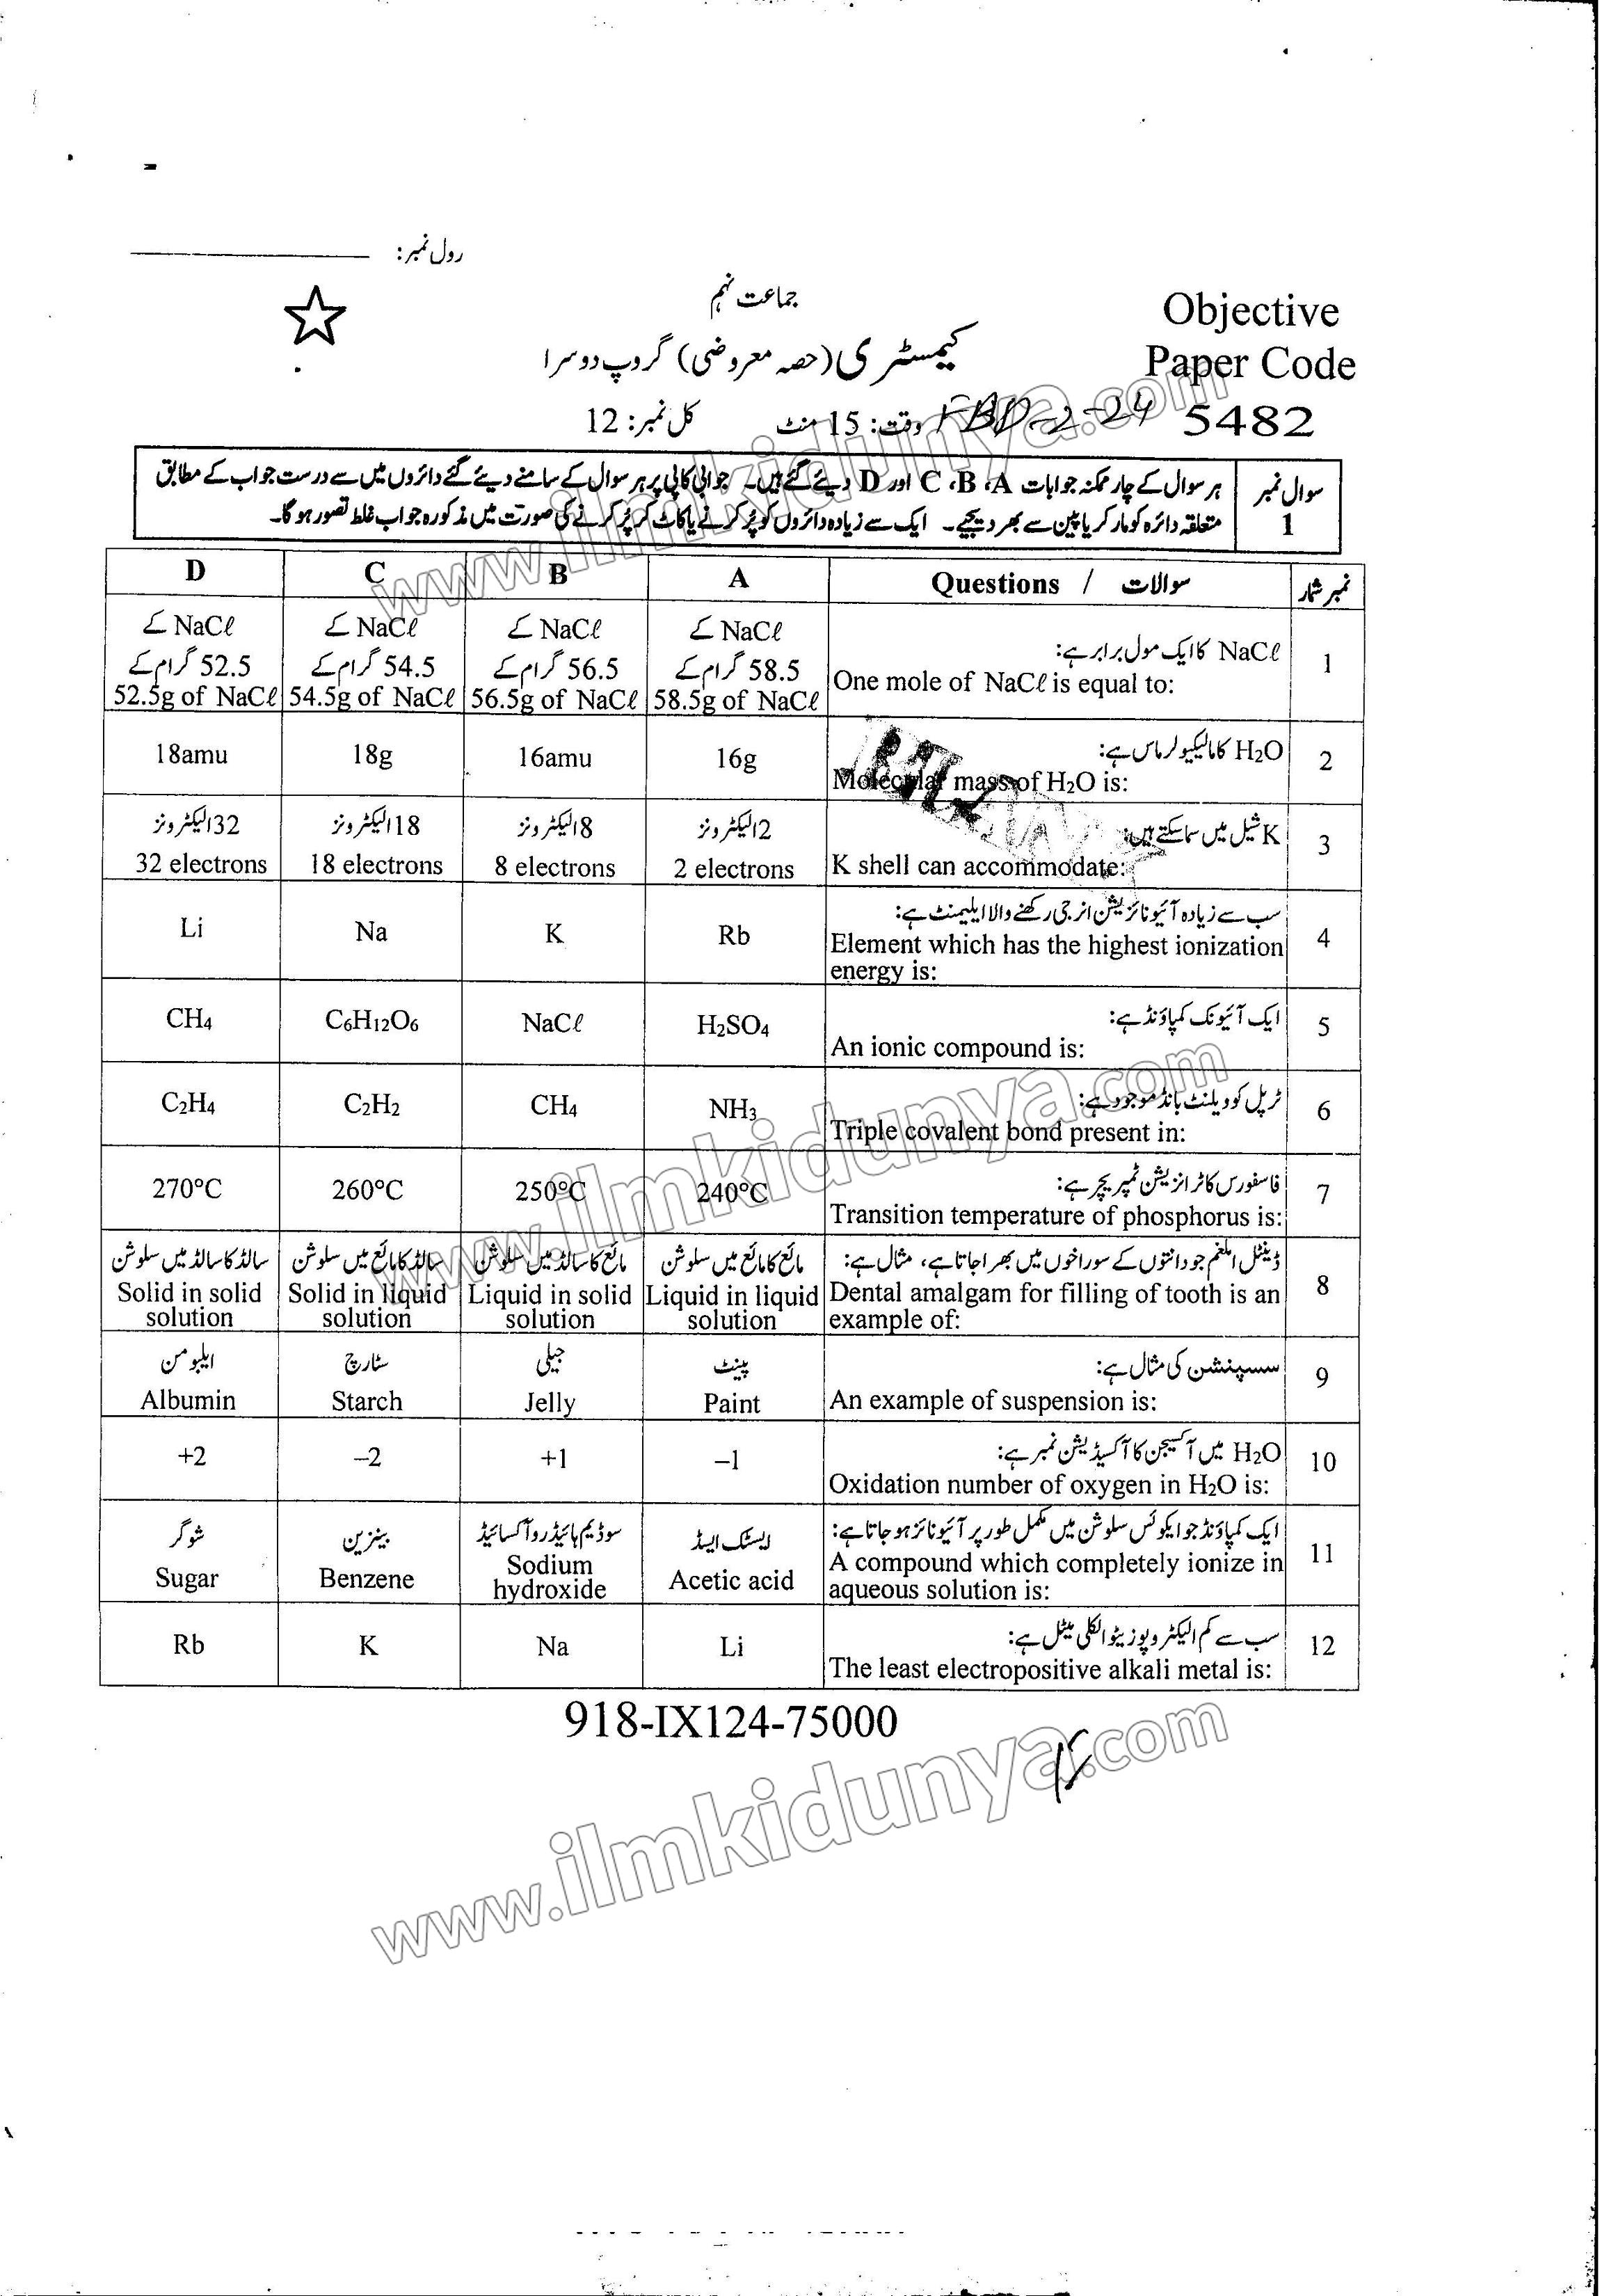 رول نمبر:
جماعت نہم
Objective
Paper Code
کیمسٹری (حصہ معروضی) گروپ دوسرا
5482
FBD-2-24
وقت: 15 منٹ
کل نمبر: 12
سوال نمبر 1
ہر سوال کے چار ممکنہ جوابات A، B، C اور D دیئے گئے ہیں۔ جوابی کاپی پر ہر سوال کے سامنے دیئے گئے دائروں میں سے درست جواب کے مطابق
متعلقہ دائرہ کو مارکر یا پین سے بھر دیجیے۔ ایک سے زیادہ دائروں کو پُر کرنے یا کاٹ کر پُر کرنے کی صورت میں مذکورہ جواب غلط تصور ہوگا۔
نمبر شمار
سوالات / Questions
A
B
C
D
1
NaCℓ کا ایک مول برابر ہے:
One mole of NaCℓ is equal to:
NaCℓ کے
58.5 گرام کے
58.5g of NaCℓ
NaCℓ کے
56.5 گرام کے
56.5g of NaCℓ
NaCℓ کے
54.5 گرام کے
54.5g of NaCℓ
NaCℓ کے
52.5 گرام کے
52.5g of NaCℓ
2
H₂O کا مالیکیولر ماس ہے:
Molecular mass of H₂O is:
16g
16amu
18g
18amu
3
K شیل میں سما سکتے ہیں:
K shell can accommodate:
2 الیکٹرونز
2 electrons
8 الیکٹرونز
8 electrons
18 الیکٹرونز
18 electrons
32 الیکٹرونز
32 electrons
4
سب سے زیادہ آئیونائزیشن انرجی رکھنے والا ایلیمنٹ ہے:
Element which has the highest ionization
energy is:
Rb
K
Na
Li
5
ایک آئیونک کمپاؤنڈ ہے:
An ionic compound is:
H₂SO₄
NaCℓ
C₆H₁₂O₆
CH₄
6
ٹرپل کوویلنٹ بانڈ موجود ہے:
Triple covalent bond present in:
NH₃
CH₄
C₂H₂
C₂H₄
7
فاسفورس کا ٹرانزیشن ٹمپریچر ہے:
Transition temperature of phosphorus is:
240°C
250°C
260°C
270°C
8
ڈینٹل املغم جو دانتوں کے سوراخوں میں بھرا جاتا ہے، مثال ہے:
Dental amalgam for filling of tooth is an
example of:
مائع کا مائع میں سلوشن
Liquid in liquid
solution
مائع کا سالڈ میں سلوشن
Liquid in solid
solution
سالڈ کا مائع میں سلوشن
Solid in liquid
solution
سالڈ کا سالڈ میں سلوشن
Solid in solid
solution
9
سسپنشن کی مثال ہے:
An example of suspension is:
پینٹ
Paint
جیلی
Jelly
سٹارچ
Starch
ایلبومن
Albumin
10
H₂O میں آکسیجن کا آکسیڈیشن نمبر ہے:
Oxidation number of oxygen in H₂O is:
–1
+1
–2
+2
11
ایک کمپاؤنڈ جو ایکوئس سلوشن میں مکمل طور پر آئیونائز ہو جاتا ہے:
A compound which completely ionize in
aqueous solution is:
ایسٹک ایسڈ
Acetic acid
سوڈیم ہائیڈروآکسائیڈ
Sodium
hydroxide
بینزین
Benzene
شوگر
Sugar
12
سب سے کم الیکٹروپوزیٹو الکلی میٹل ہے:
The least electropositive alkali metal is:
Li
Na
K
Rb
918-IX124-75000
www.ilmkidunya.com
www.ilmkidunya.com
www.ilmkidunya.com